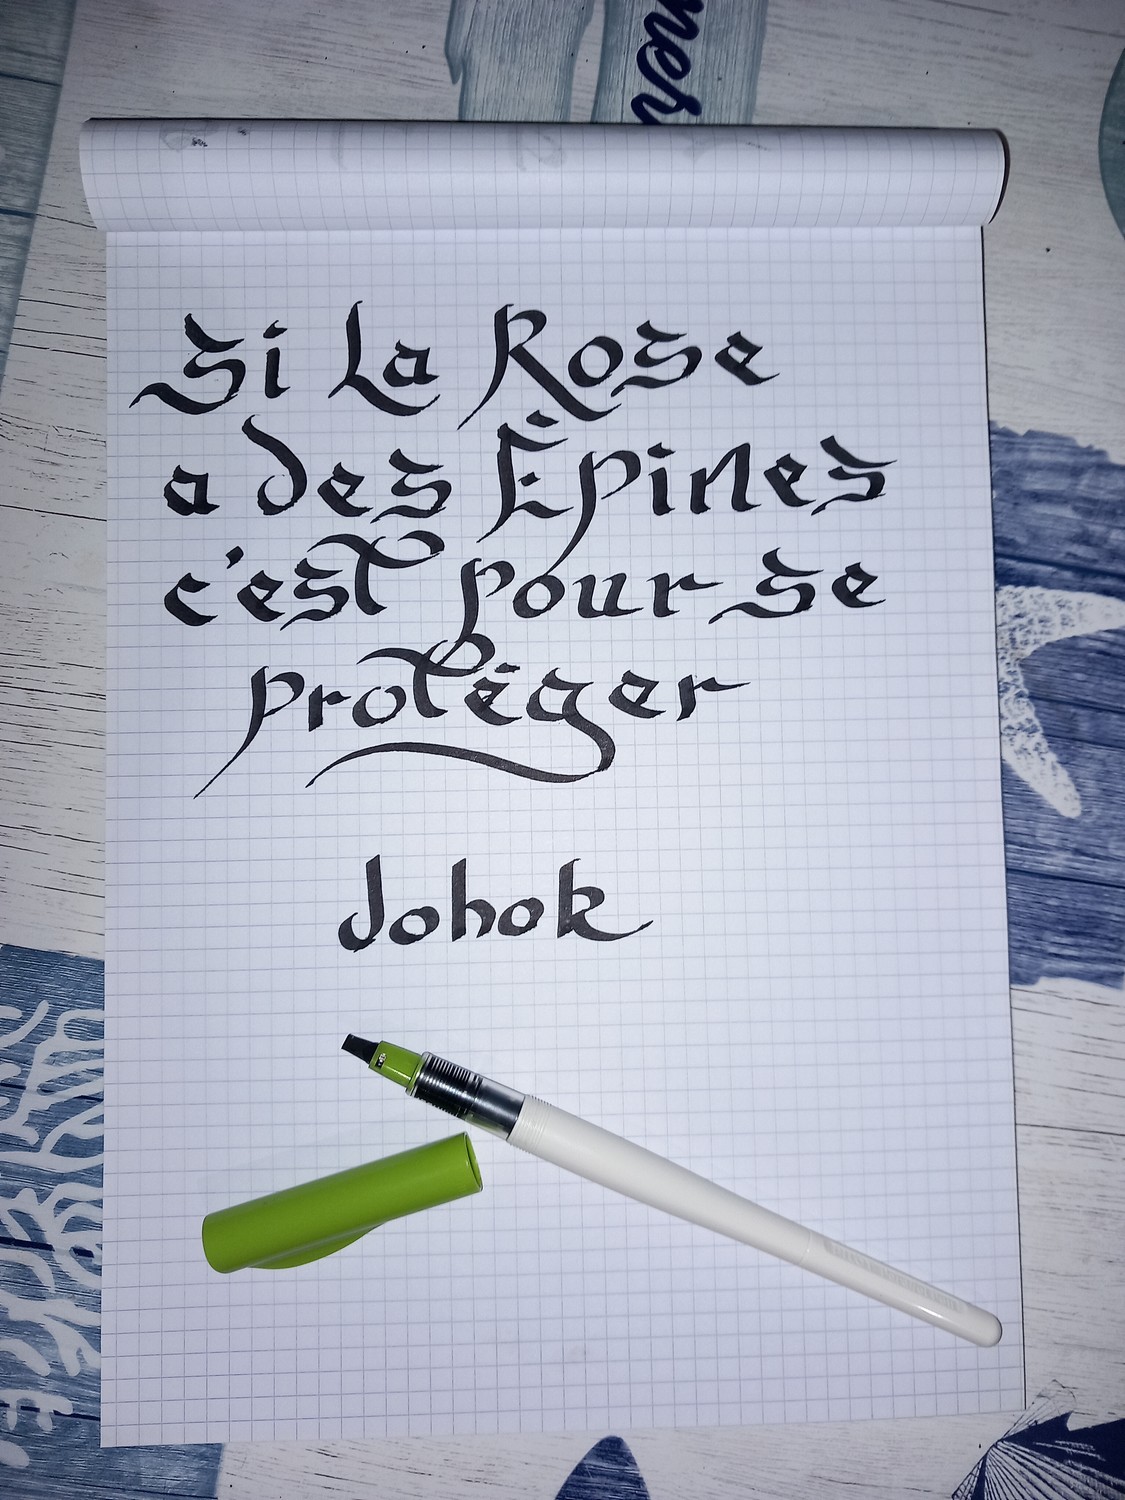 Si La Rose
a des Épines
c'est pour se
protéger
Johok